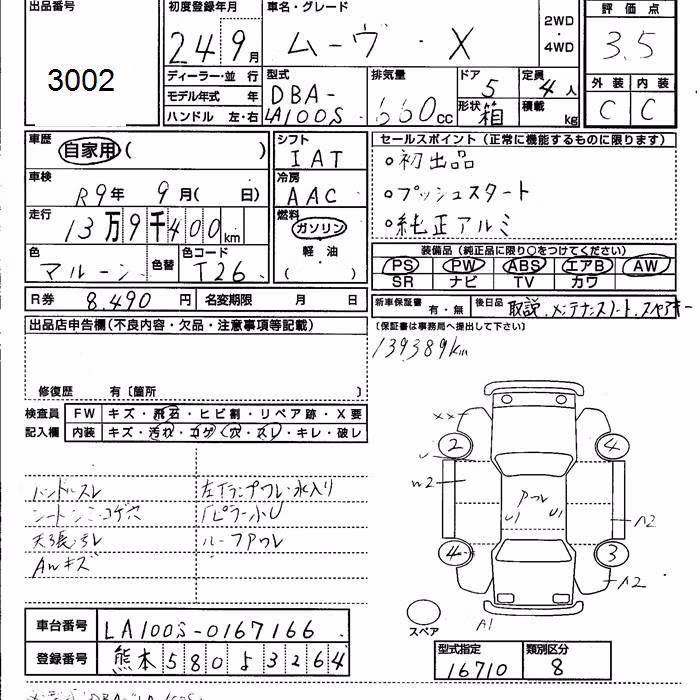 出品番号 3002
初度登録年月 24 9月
車名・グレード ムーヴ・X
2WD・4WD
評価点 3.5
外装 C 内装 C
ディーラー・並行
モデル年式 年
ハンドル 左・右
型式 DBA-LA100S
排気量 660cc
ドア 5
形状 箱
定員 4人
積載 kg
車歴 自家用( )
車検 R9年 9月( 日)
走行 13万9千400km
色 マルーン 色替 色コード T26
シフト IAT
冷房 AAC
燃料 ガソリン
軽油
( ・ )
セールスポイント(正常に機能するものに限ります)
○初出品
○プッシュスタート
○純正アルミ
装備品(純正品に限り○をつけてください)
PS PW ABS エアB AW
SR ナビ TV カワ
R券 8,490円 名変期限 月 日
新車保証書 有・無 後日品 取説、メンテナンスノート、スペアキー
(保証書は事務局へ提出して下さい)
139389km
出品店申告欄(不良内容・欠品・注意事項等記載)
修復歴 有〔箇所 〕
検査員記入欄
FW キズ・飛石・ヒビ割・リペア跡・X要
内装 キズ・汚れ・コゲ・穴・スレ・キレ・破レ
ハンドルスレ
シートシミ・コゲ穴
天張汚レ
AWキズ
左Tランプワレ・水入り
ルーフアワレ
××
2 4
U
W2
アワレ
U1 U1
A2
4 3
A2
A1
スペア
車台番号 LA100S-0167166
登録番号 熊本580よ3264
型式指定 16710
類別区分 8